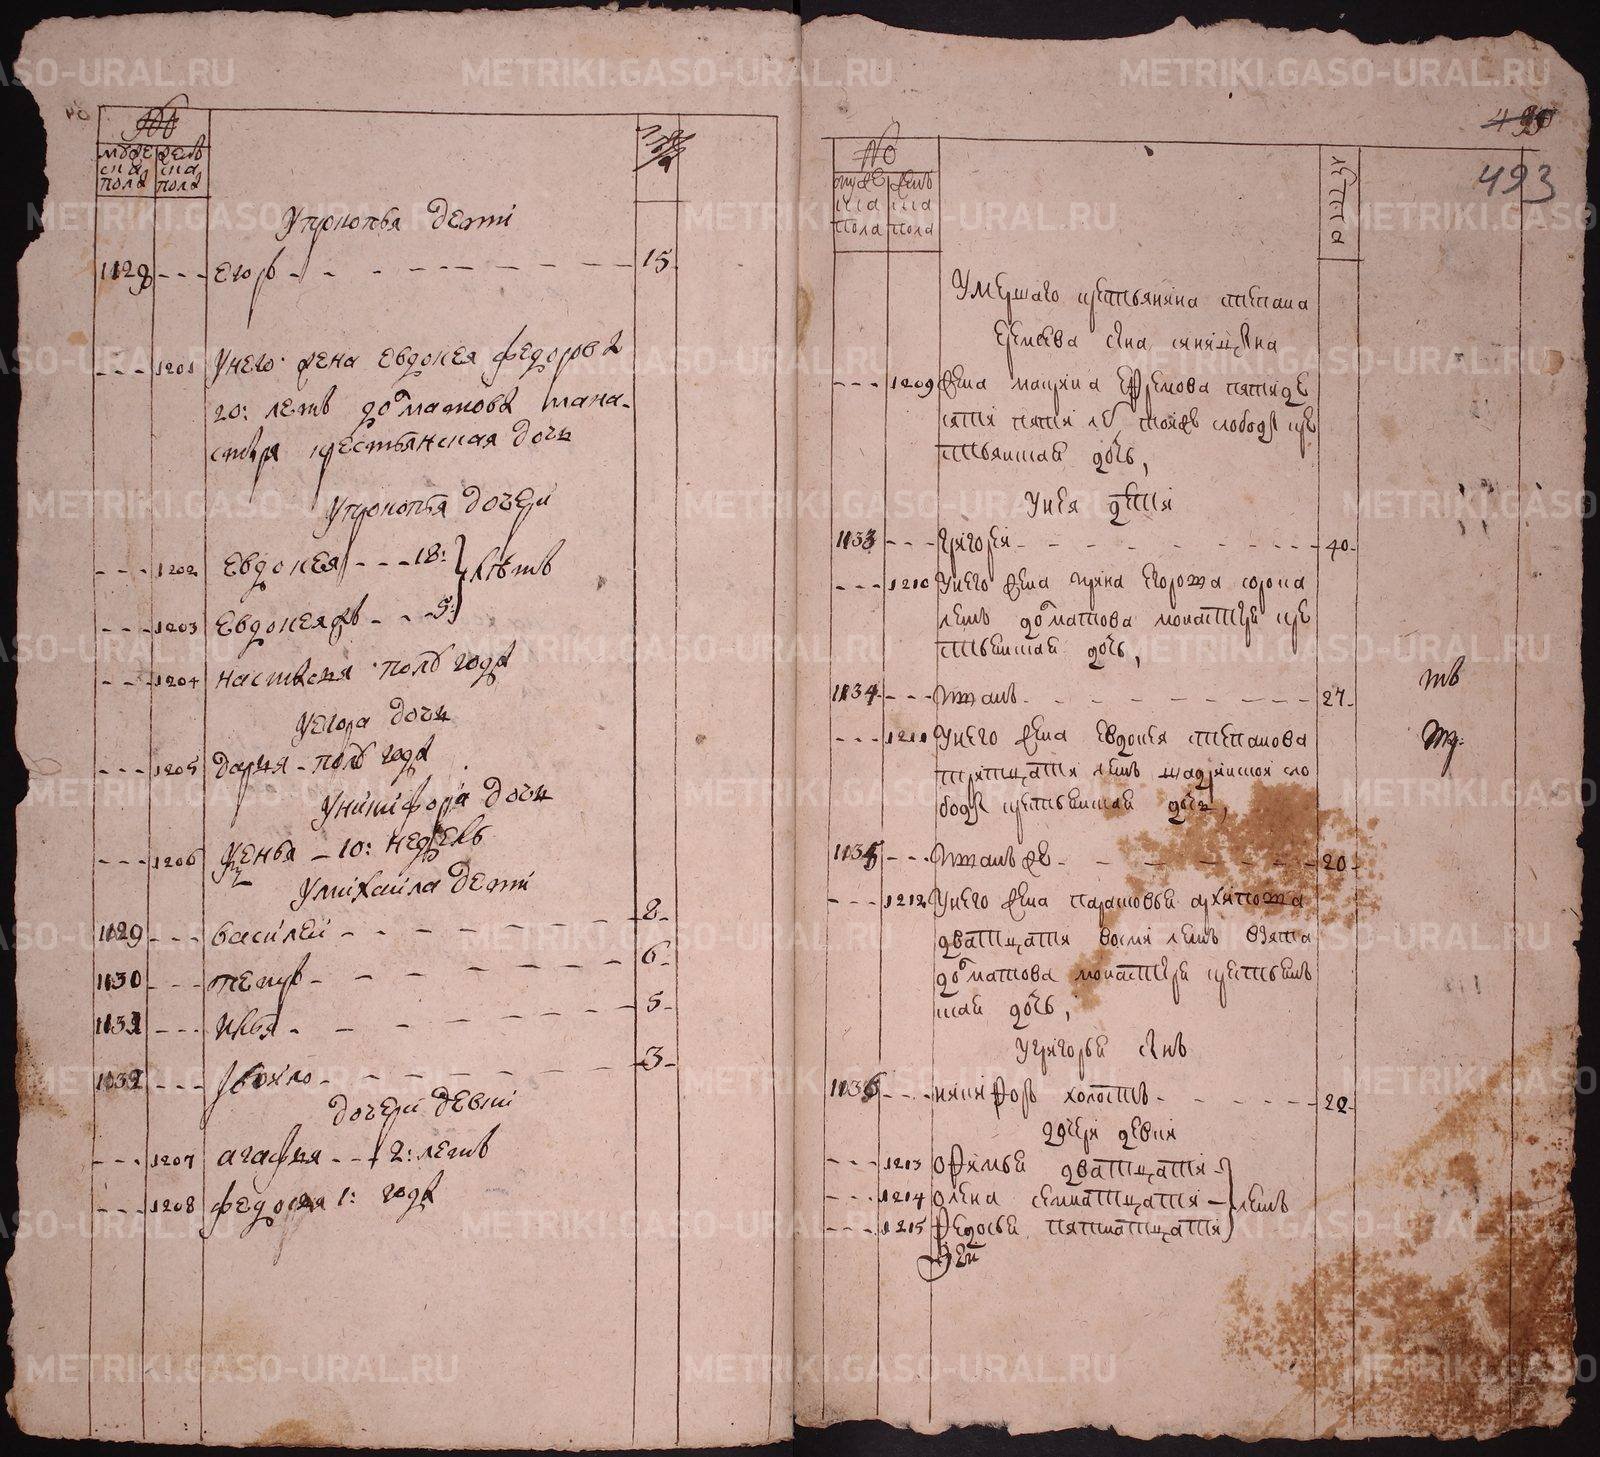 №
мужеска полѫ
женска полѫ
лета
Упрокопья дети
1128 --- егоръ - - - - - - - - 15
--- 1201 Унего жена евдокея федорова
20: летъ долматова мана-
стыря крестьянская дочь
Упрокопья дочери
--- 1202 евдокея --- 18: летъ
--- 1203 евдокеяжъ --- 5:
--- 1204 настасья полъ года
Уегора дочь
--- 1205 дарья - полъ года
Уникифора дочь
--- 1206 - 10: недель
Умихаила дети
1129 --- василей - - - - - - 2
1130 --- петръ - - - - - - 6
1131 --- илья - - - - - - 5
1132 --- - - - - - - 3
дочери девки
--- 1207 агафья --- 2: летъ
--- 1208 федосья 1: года
493
№
мужеска пола
женска пола
лѣта
Умершаго крестьянина степана
еремеева сна синицына
--- 1209 жена маѳрина ефремова пятиде
сяти пяти ле тояжъ слободы кре
стьянская дочь,
Унея дети
1133 --- григорей - - - - - - - 40
--- 1210 Унего жена ирина егорова сорока
летъ долматова монастыря кре
стьянская дочь,
1134 --- иванъ - - - - - - - 27
--- 1211 Унего жена евдокея степанова
тритцати летъ шадринской сло
боды крестьянская дочь,
1135 --- иванъ же - - - - - - 20
--- 1212 Унего жена парасковья архипова
дватцати восми летъ взята
долматова монастыря крестьянъ
ская дочь,
Угригорья снъ
1136 --- никифоръ холостъ - - - - - 22
дочери девки
--- 1213 офимья дватцати
--- 1214 олена семнатцати летъ
--- 1215 федосья пятнатцати
METRIKI.GASO-URAL.RU